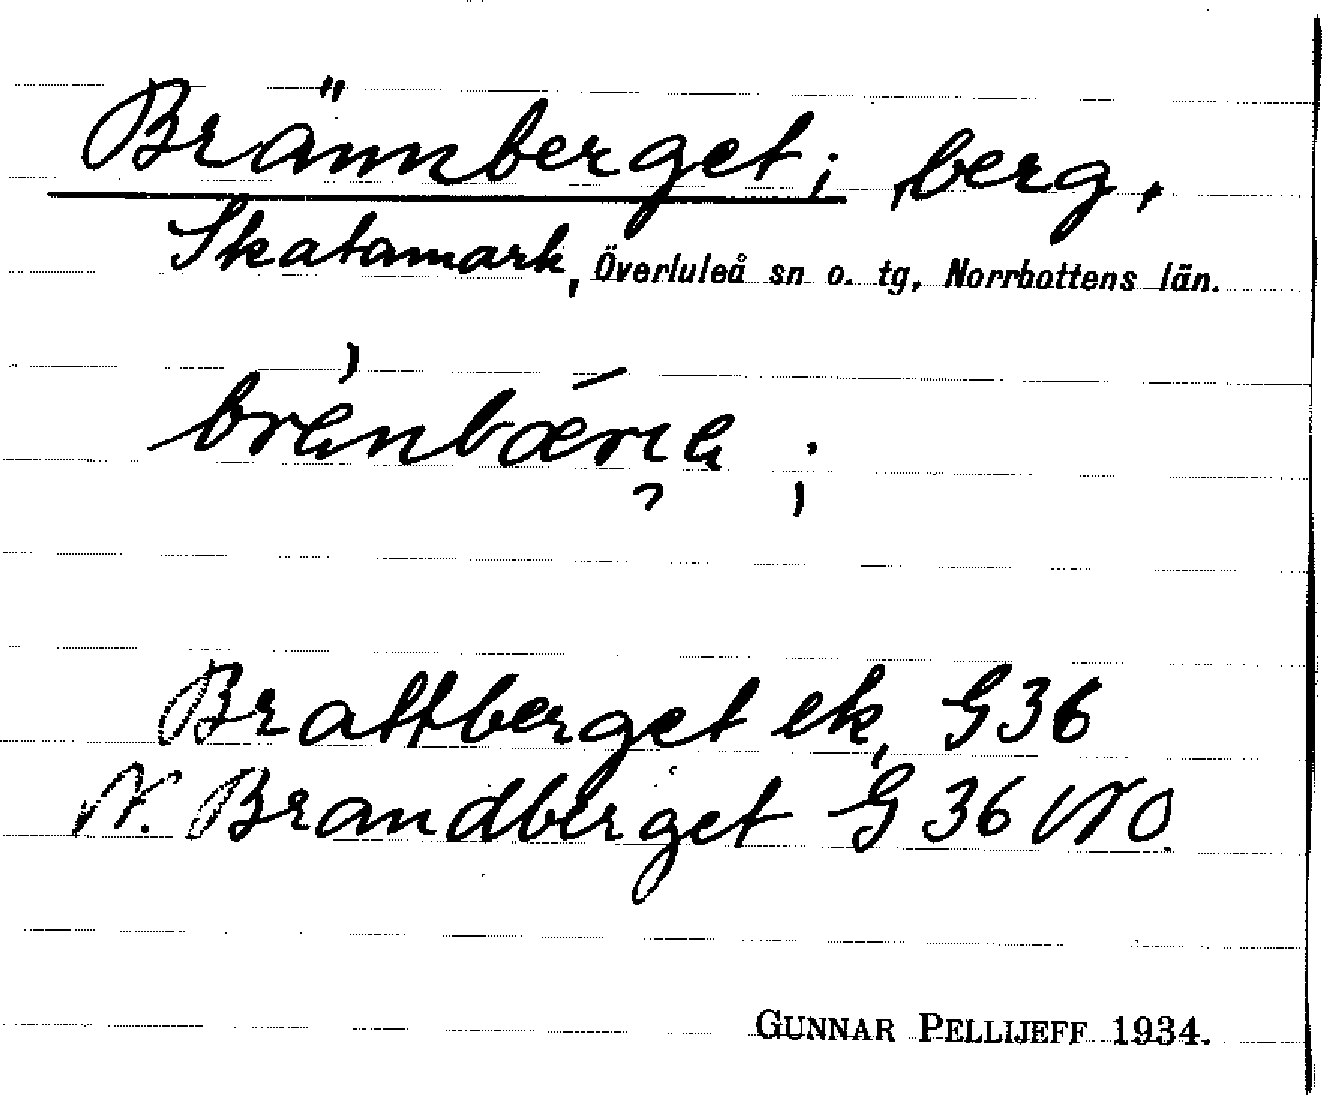 Brännberget; berg,
Skatamark, Överluleå sn o. tg, Norrbottens län.
Brattberget ek, G36
N. Brandberget G 36 NO.
GUNNAR PELLIJEFF 1934.